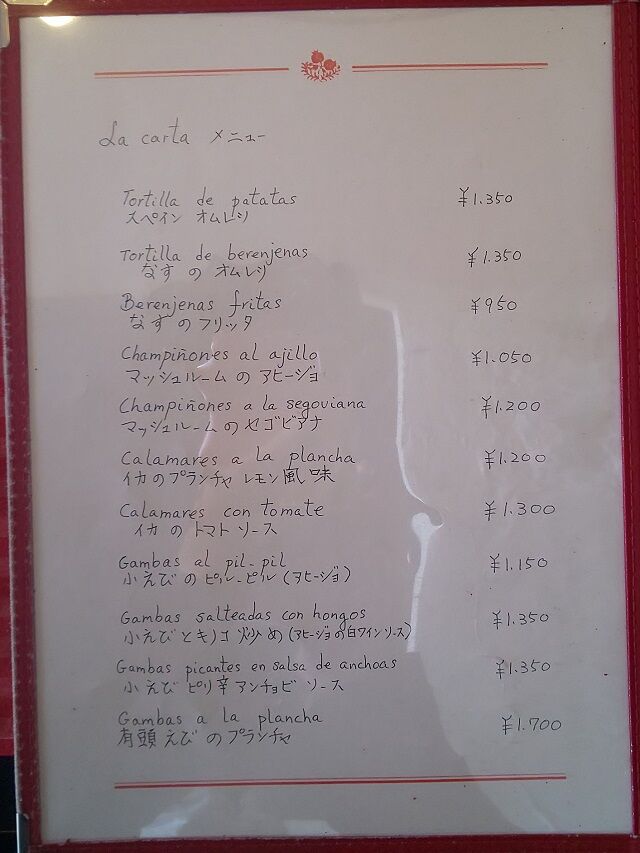 La carta メニュー
Tortilla de patatas ¥1.350
スペイン オムレツ
Tortilla de berenjenas ¥1.350
なす の オムレツ
Berenjenas fritas ¥950
なす のフリッタ
Champiñones al ajillo ¥1.050
マッシュルーム の アヒージョ
Champiñones a la segoviana ¥1.200
マッシュルーム のセゴビアナ
Calamares a la plancha ¥1.200
イカのプランチャ レモン風味
Calamares con tomate ¥1.300
イカ の トマト ソース
Gambas al pil-pil ¥1.150
小えび の ピル-ピル (アヒージョ)
Gambas salteadas con hongos ¥1.350
小えび と キノコ 炒め (アヒージョの白ワイン ソース)
Gambas picantes en salsa de anchoas ¥1.350
小えび ピリ辛 アンチョビ ソース
Gambas a la plancha ¥1.700
有頭 えび のプランチャ